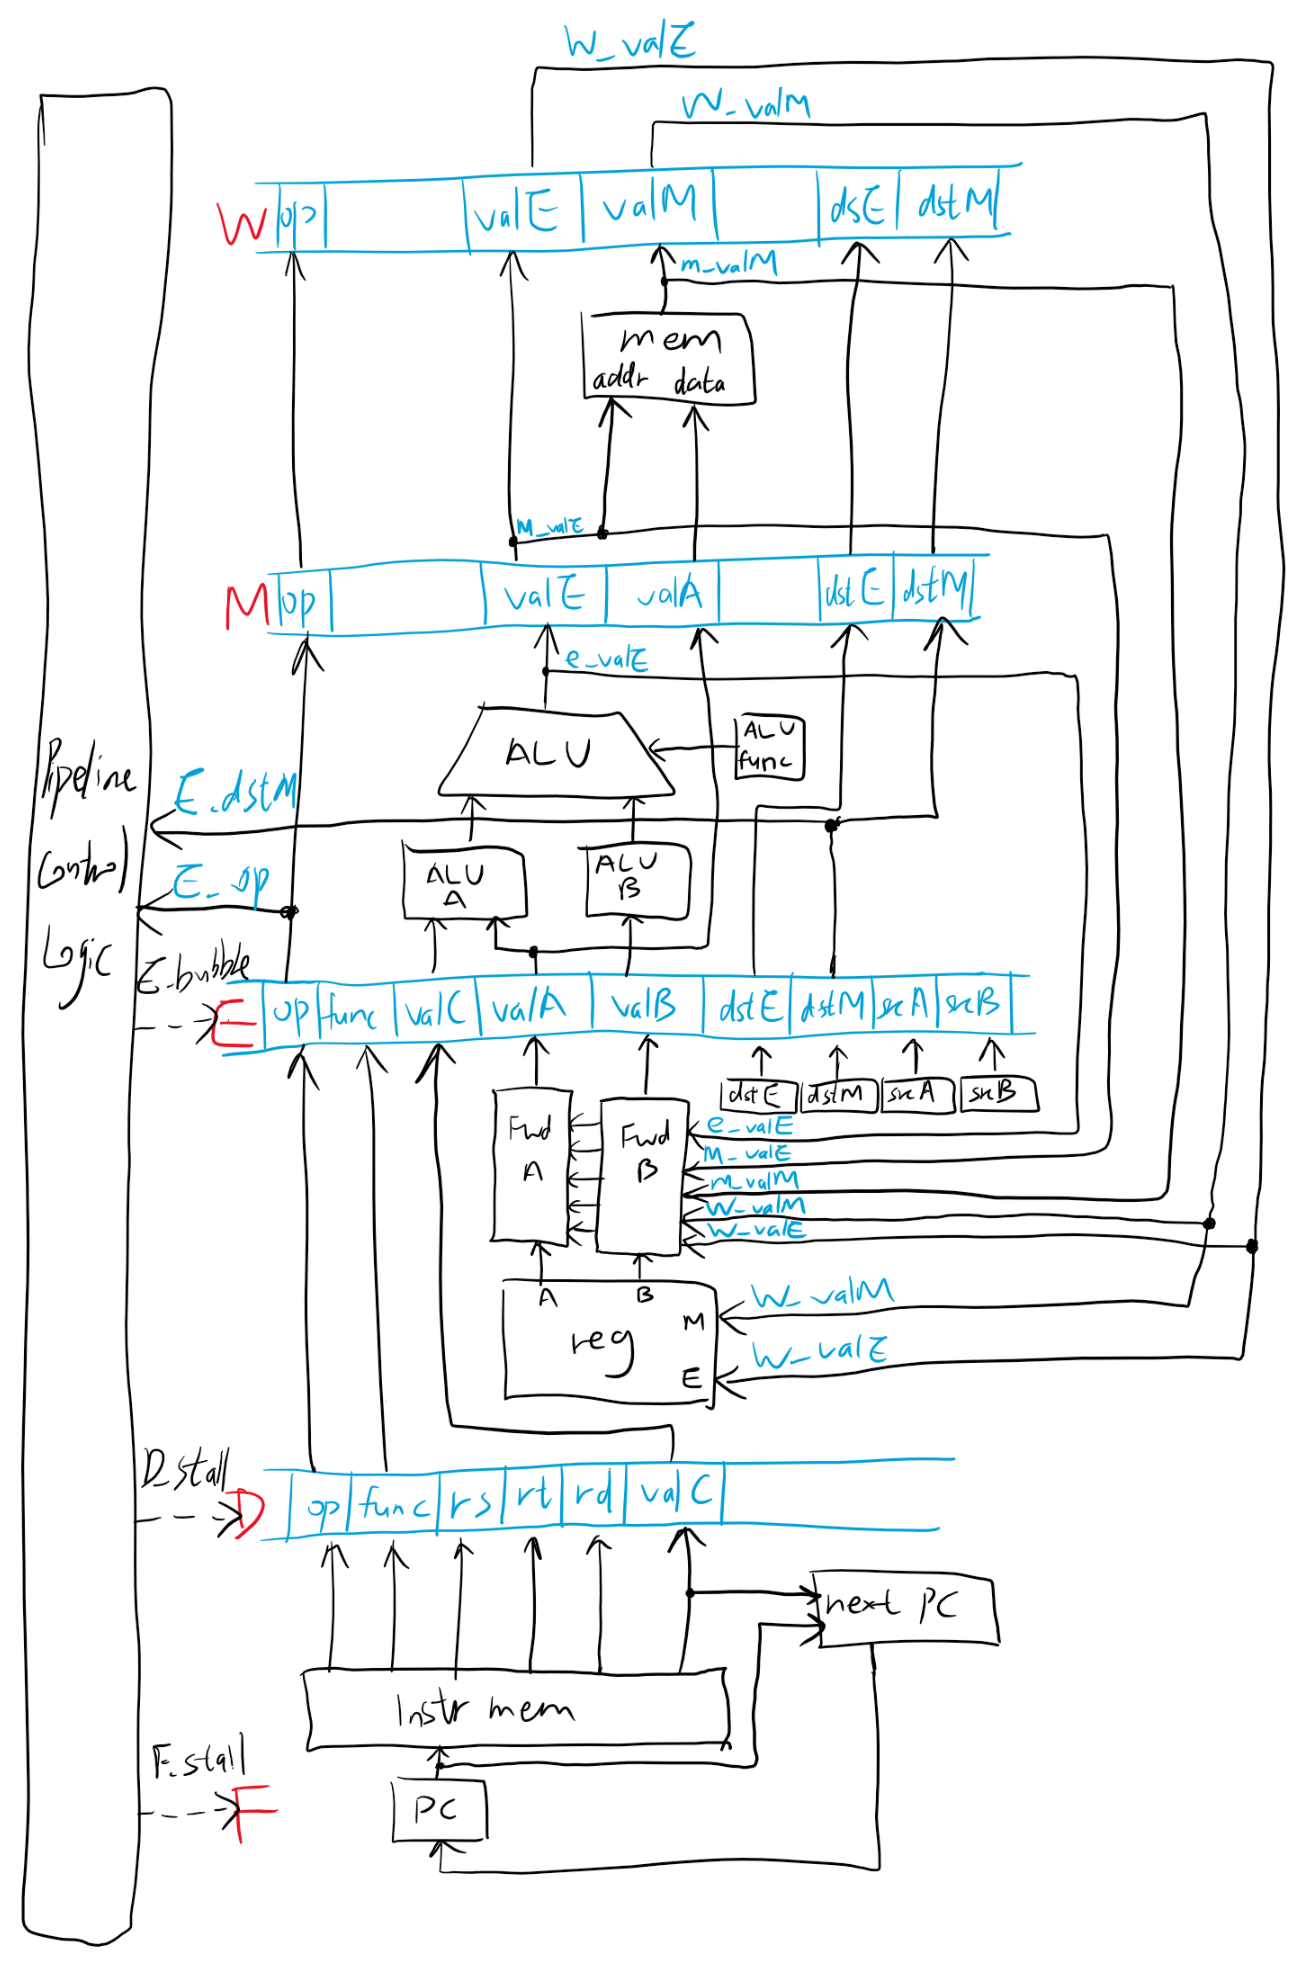 W_valE
W_valM
W op valE valM dsE dstM
m_valM
mem
addr data
M_valE
M op valE valA dstE dstM
e_valE
ALU
ALU
func
Pipeline
Control
Logic
E_dstM
ALU
A
ALU
B
E_op
E_bubble
E op func valC valA valB dstE dstM srcA srcB
dstE dstM srcA srcB
Fwd
A
Fwd
B
e_valE
M_valE
m_valM
W_valM
W_valE
A B
reg
M
E
W_valM
W_valE
D_stall
D op func rs rt rd valC
next PC
Instr mem
F_stall
F
PC